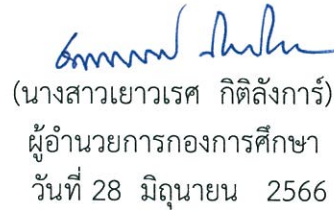 (นางสาวเยาวเรศ กิติลังการ์)
ผู้อำนวยการกองการศึกษา
วันที่ 28 มิถุนายน 2566